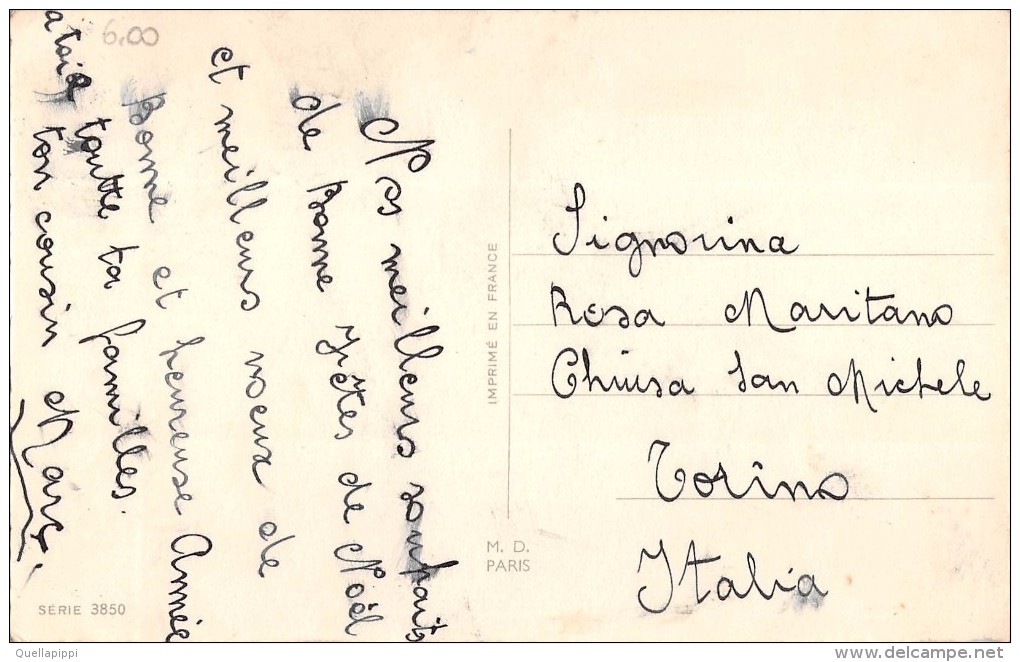 6,00
Nos meilleurs souhaits
de Bonne Fêtes de Noël
et meilleurs voeux de
Bonne et heureuse Année
a toia toutte ta familles.
ton cousin Marc.
IMPRIMÉ EN FRANCE
Signorina
Rosa Maritano
Chiusa San Michele
Torino
Italia
M. D.
PARIS
SÉRIE 3850
Quellapippi
delcampe.net